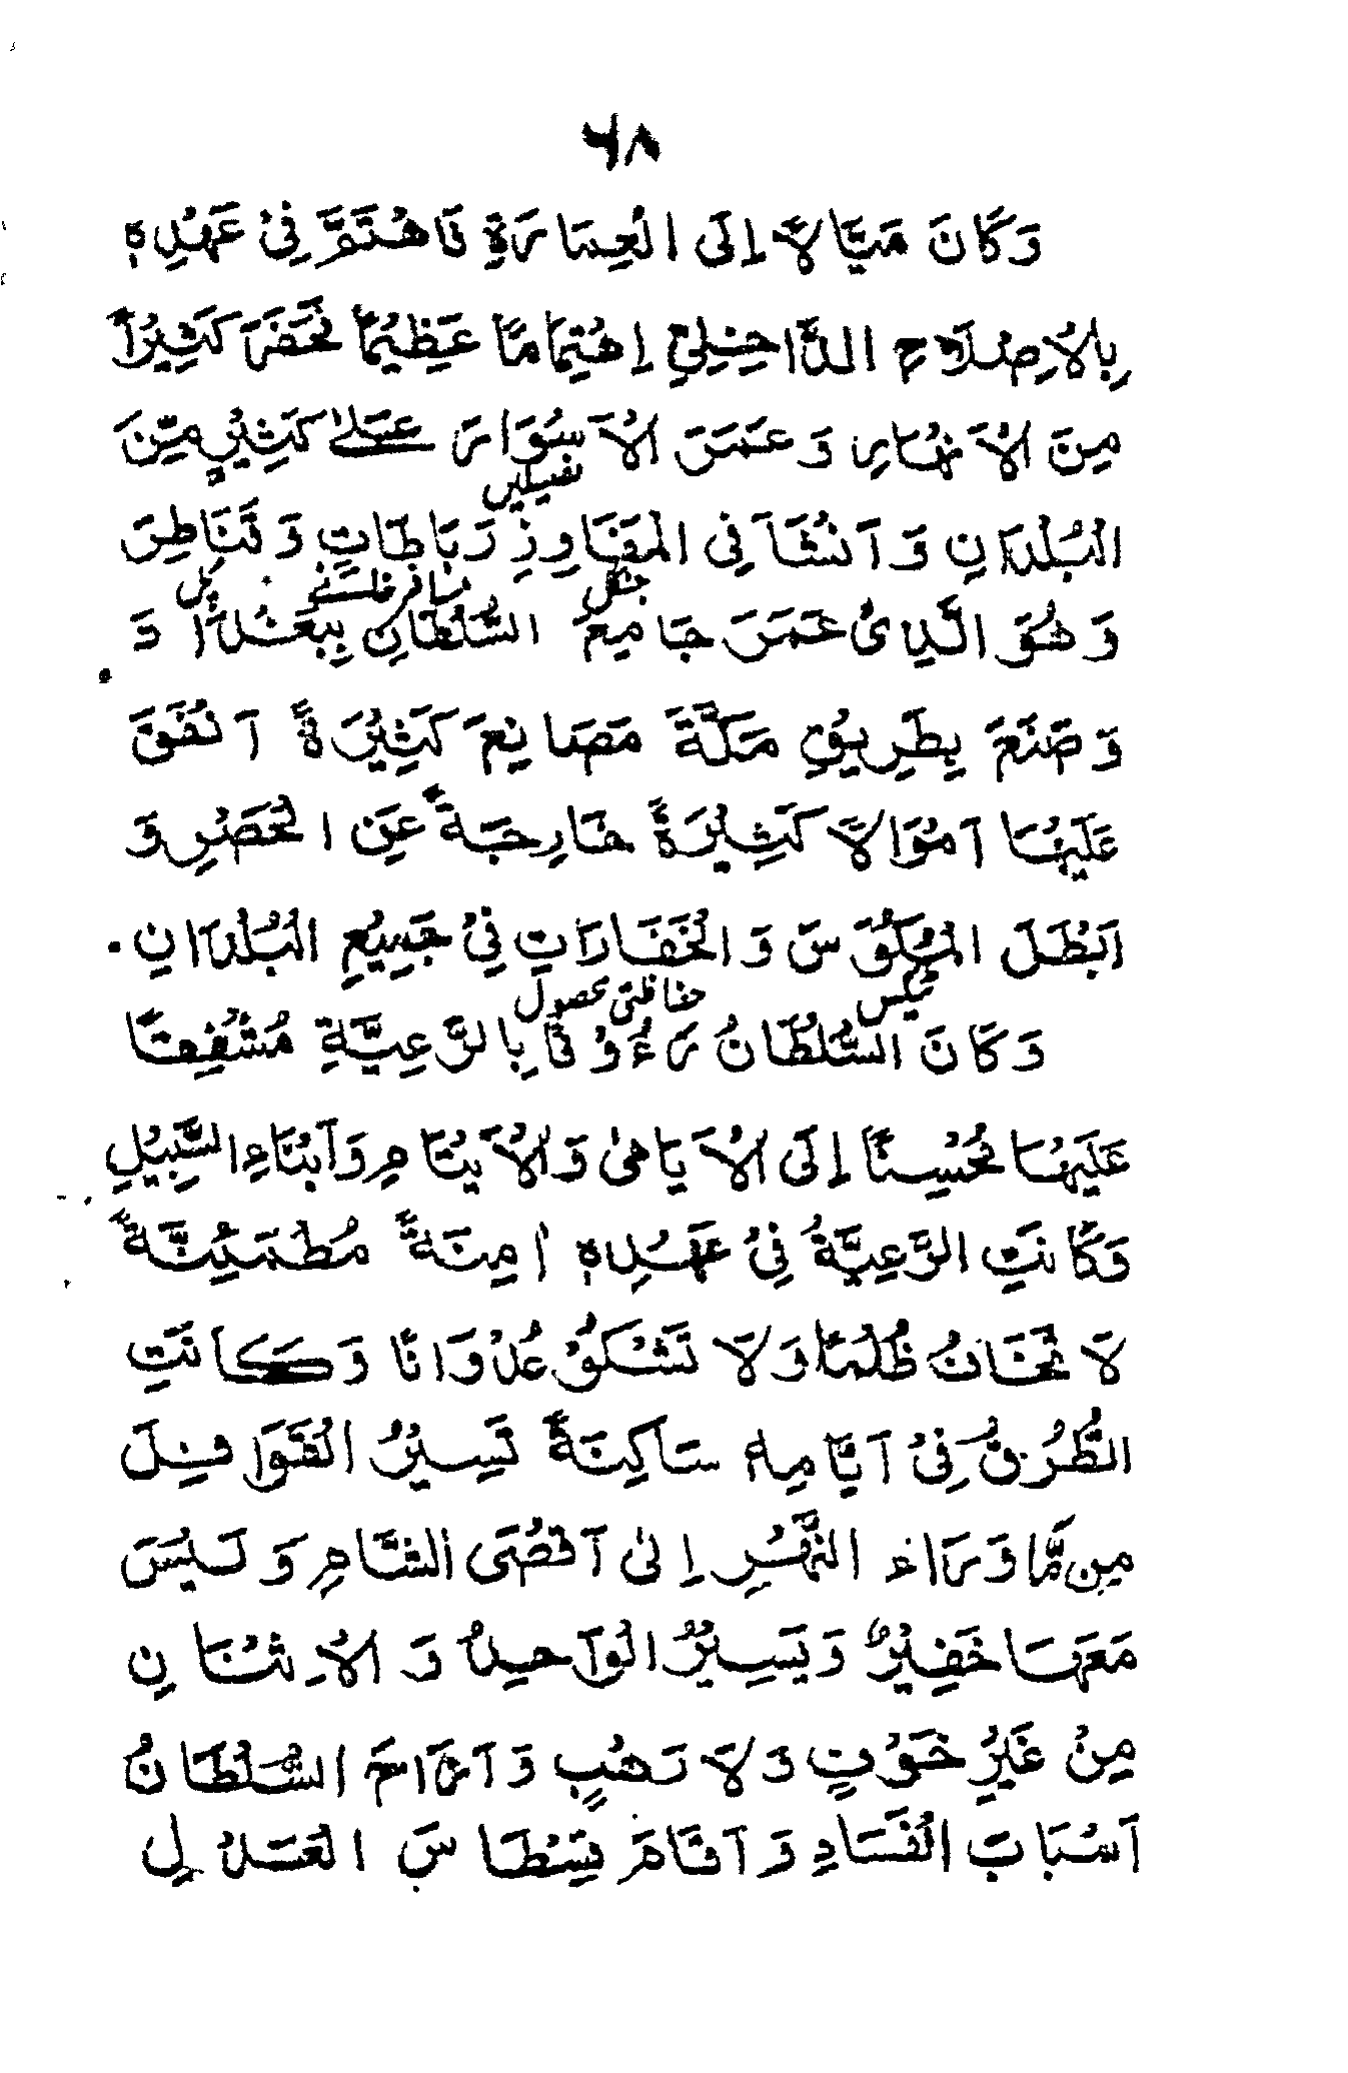 ۶۸
وَكَانَ مَيَّالًا إِلَى الْعِمَارَةِ فَاهْتَمَّ فِيْ عَهْدِهٖ
بِالْاِصْلَاحِ الدَّاخِلِيِّ اِهْتِمَامًا عَظِيْمًا فَحَفَرَ كَثِيْرًا
مِنَ الْاَنْهَارِ وَعَمَرَ الْاَسْوَارَ عَلٰى كَثِيْرٍ مِّنَ
فصیلیں
الْبُلْدَانِ وَاَنْشَأَ فِي الْمَفَاوِزِ رِبَاطَاتٍ وَقَنَاطِرَ
جنگل مسافر خانے پل
وَهُوَ الَّذِيْ عَمَرَ جَامِعَ السُّلْطَانِ بِبَغْدَادَ
وَصَنَعَ بِطَرِيْقِ مَكَّةَ مَصَانِعَ كَثِيْرَةً اَنْفَقَ
عَلَيْهَا اَمْوَالًا كَثِيْرَةً خَارِجَةً عَنِ الْحَصْرِ وَ
اَبْطَلَ الْمُكُوْسَ وَالْخَفَارَاتِ فِيْ جَمِيْعِ الْبُلْدَانِ.
ٹیکس حفاظتی محصول
وَكَانَ السُّلْطَانُ رَءُوْفًا بِالرَّعِيَّةِ مُشْفِقًا
عَلَيْهَا مُحْسِنًا إِلَى الْاَيَامٰى وَالْاَيْتَامِ وَاَبْنَاءِ السَّبِيْلِ
وَكَانَتِ الرَّعِيَّةُ فِيْ عَهْدِهٖ اٰمِنَةً مُطْمَئِنَّةً
لَا تَخَافُ ظُلْمًا وَلَا تَشْكُوْ عُدْوَانًا وَكَانَتِ
الطُّرُقُ فِيْ اَيَّامِهٖ سَاكِنَةً تَسِيْرُ الْقَوَافِلَ
مِنْ مَّا وَرَاءَ النَّهْرِ إِلٰى اَقْصَى الشَّامِ وَلَيْسَ
مَعَهَا خَفِيْرٌ وَيَسِيْرُ الْوَاحِدُ وَالْاِثْنَانِ
مِنْ غَيْرِ خَوْفٍ وَلَا رَهْبٍ وَاَزَاحَ السُّلْطَانُ
اَسْبَابَ الْفَسَادِ وَاَقَامَ قِسْطَاسَ الْعَدْلِ